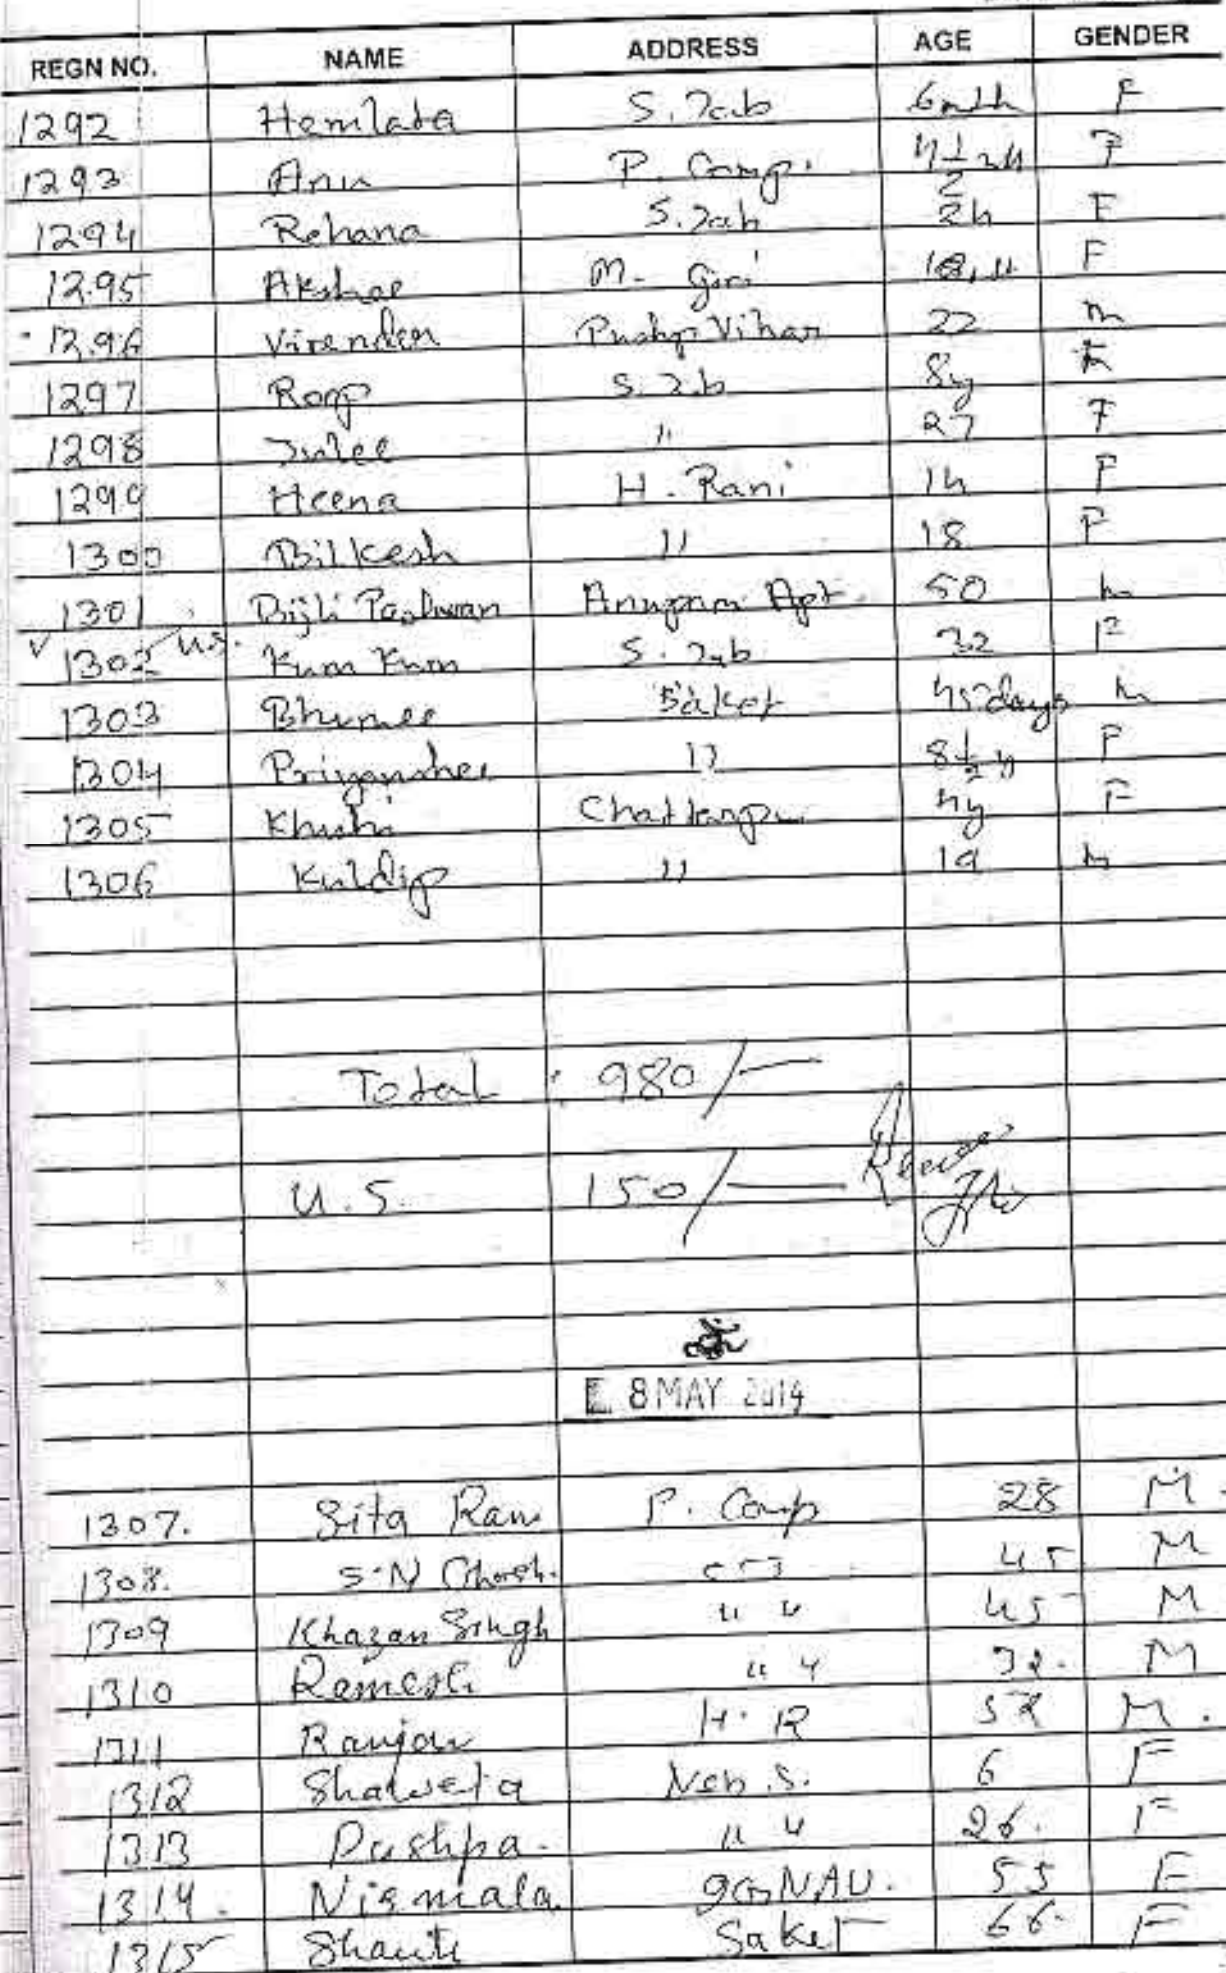 REGN NO. NAME ADDRESS AGE GENDER
1292 Hemlata S. Jab 6mth F
1293 Anu P. Comp. 4½ F
1294 Rehana S. Jab F
1295 M. Giri F
1296 Virender Pushp Vihar 22 m
1297 Roop 8y F
1298 " 27 F
1299 Heena H. Rani F
1300 Bilkesh " 18 F
1301 Bijli Paswan Anupam Apt. 50 m
1302 U.S. Kum Kum S. Jab 32 F
1303 Bhumee Saket 45 days m
1304 Priyanshee " 8½ y F
1305 Khushi Chattarpur 4y F
1306 Kuldip " 19 m
Total : 980/-
U.S. 150/-
8 MAY 2014
1307. Sita Ram P. Comp 28 M.
1308. S.N Ghosh. 45 M
1309 Khazan Singh " " 45 M
1310 Ramesh " " 32. M
1311 Ranjan H. R 52 M.
1312 Shaweta Neb. S. 6 F
1313 Pushpa. " " 26. F
1314. Nirmala. 55 F
1315 Shanti Saket 66 F